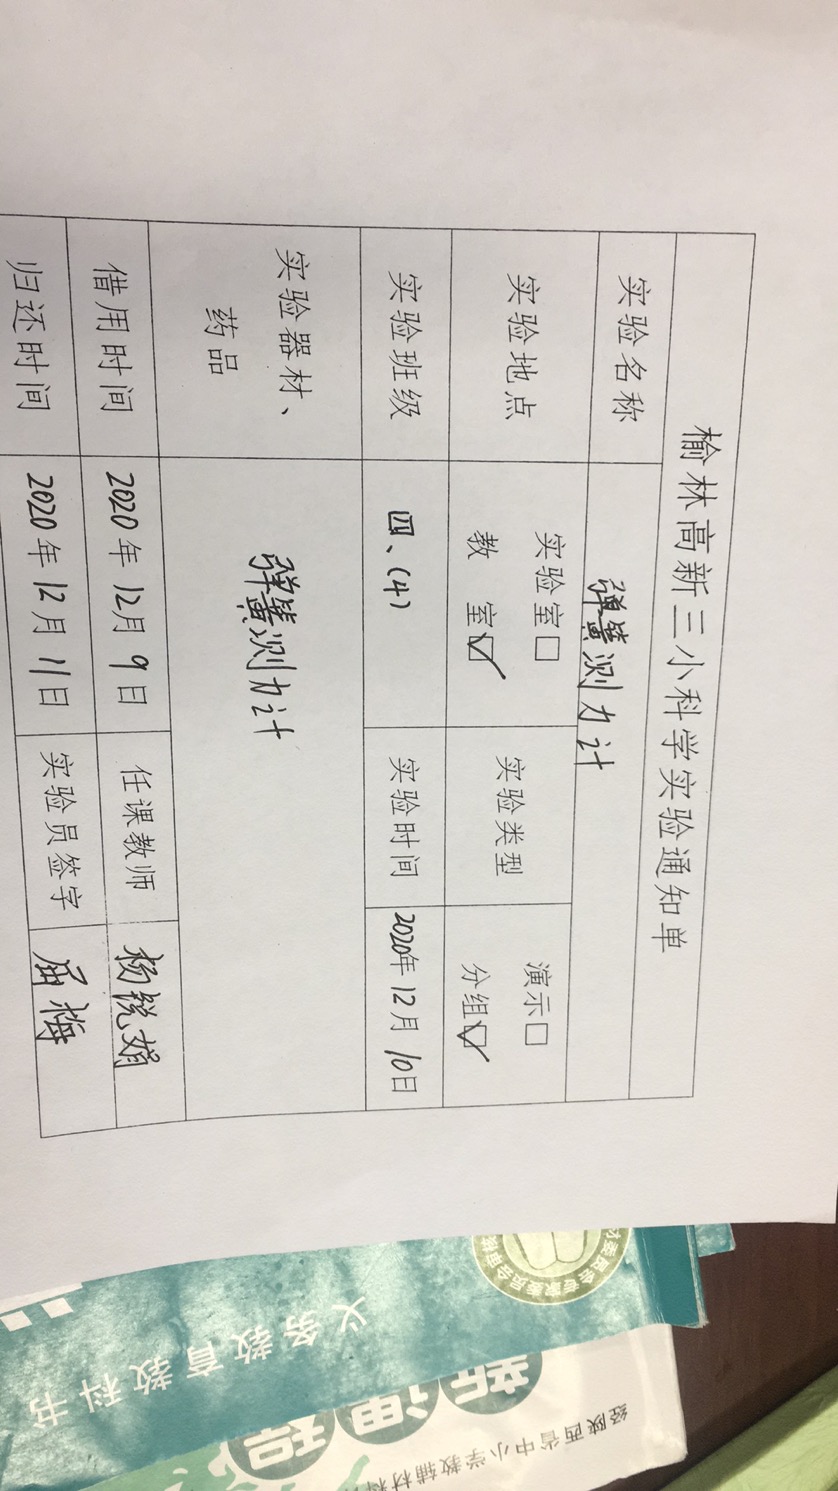 榆林高新三小科学实验通知单
实验名称 弹簧测力计
实验地点 实验室□ 教 室☑ 实验类型 演示□ 分组☑
实验班级 四、(4) 实验时间 2020年12月10日
实验器材、
药品 弹簧测力计
借用时间 2020年12月9日 任课教师 杨锐娟
归还时间 2020年12月11日 实验员签字 屈梅
义务教育教科书
新课程
经陕西省中小学教辅材料